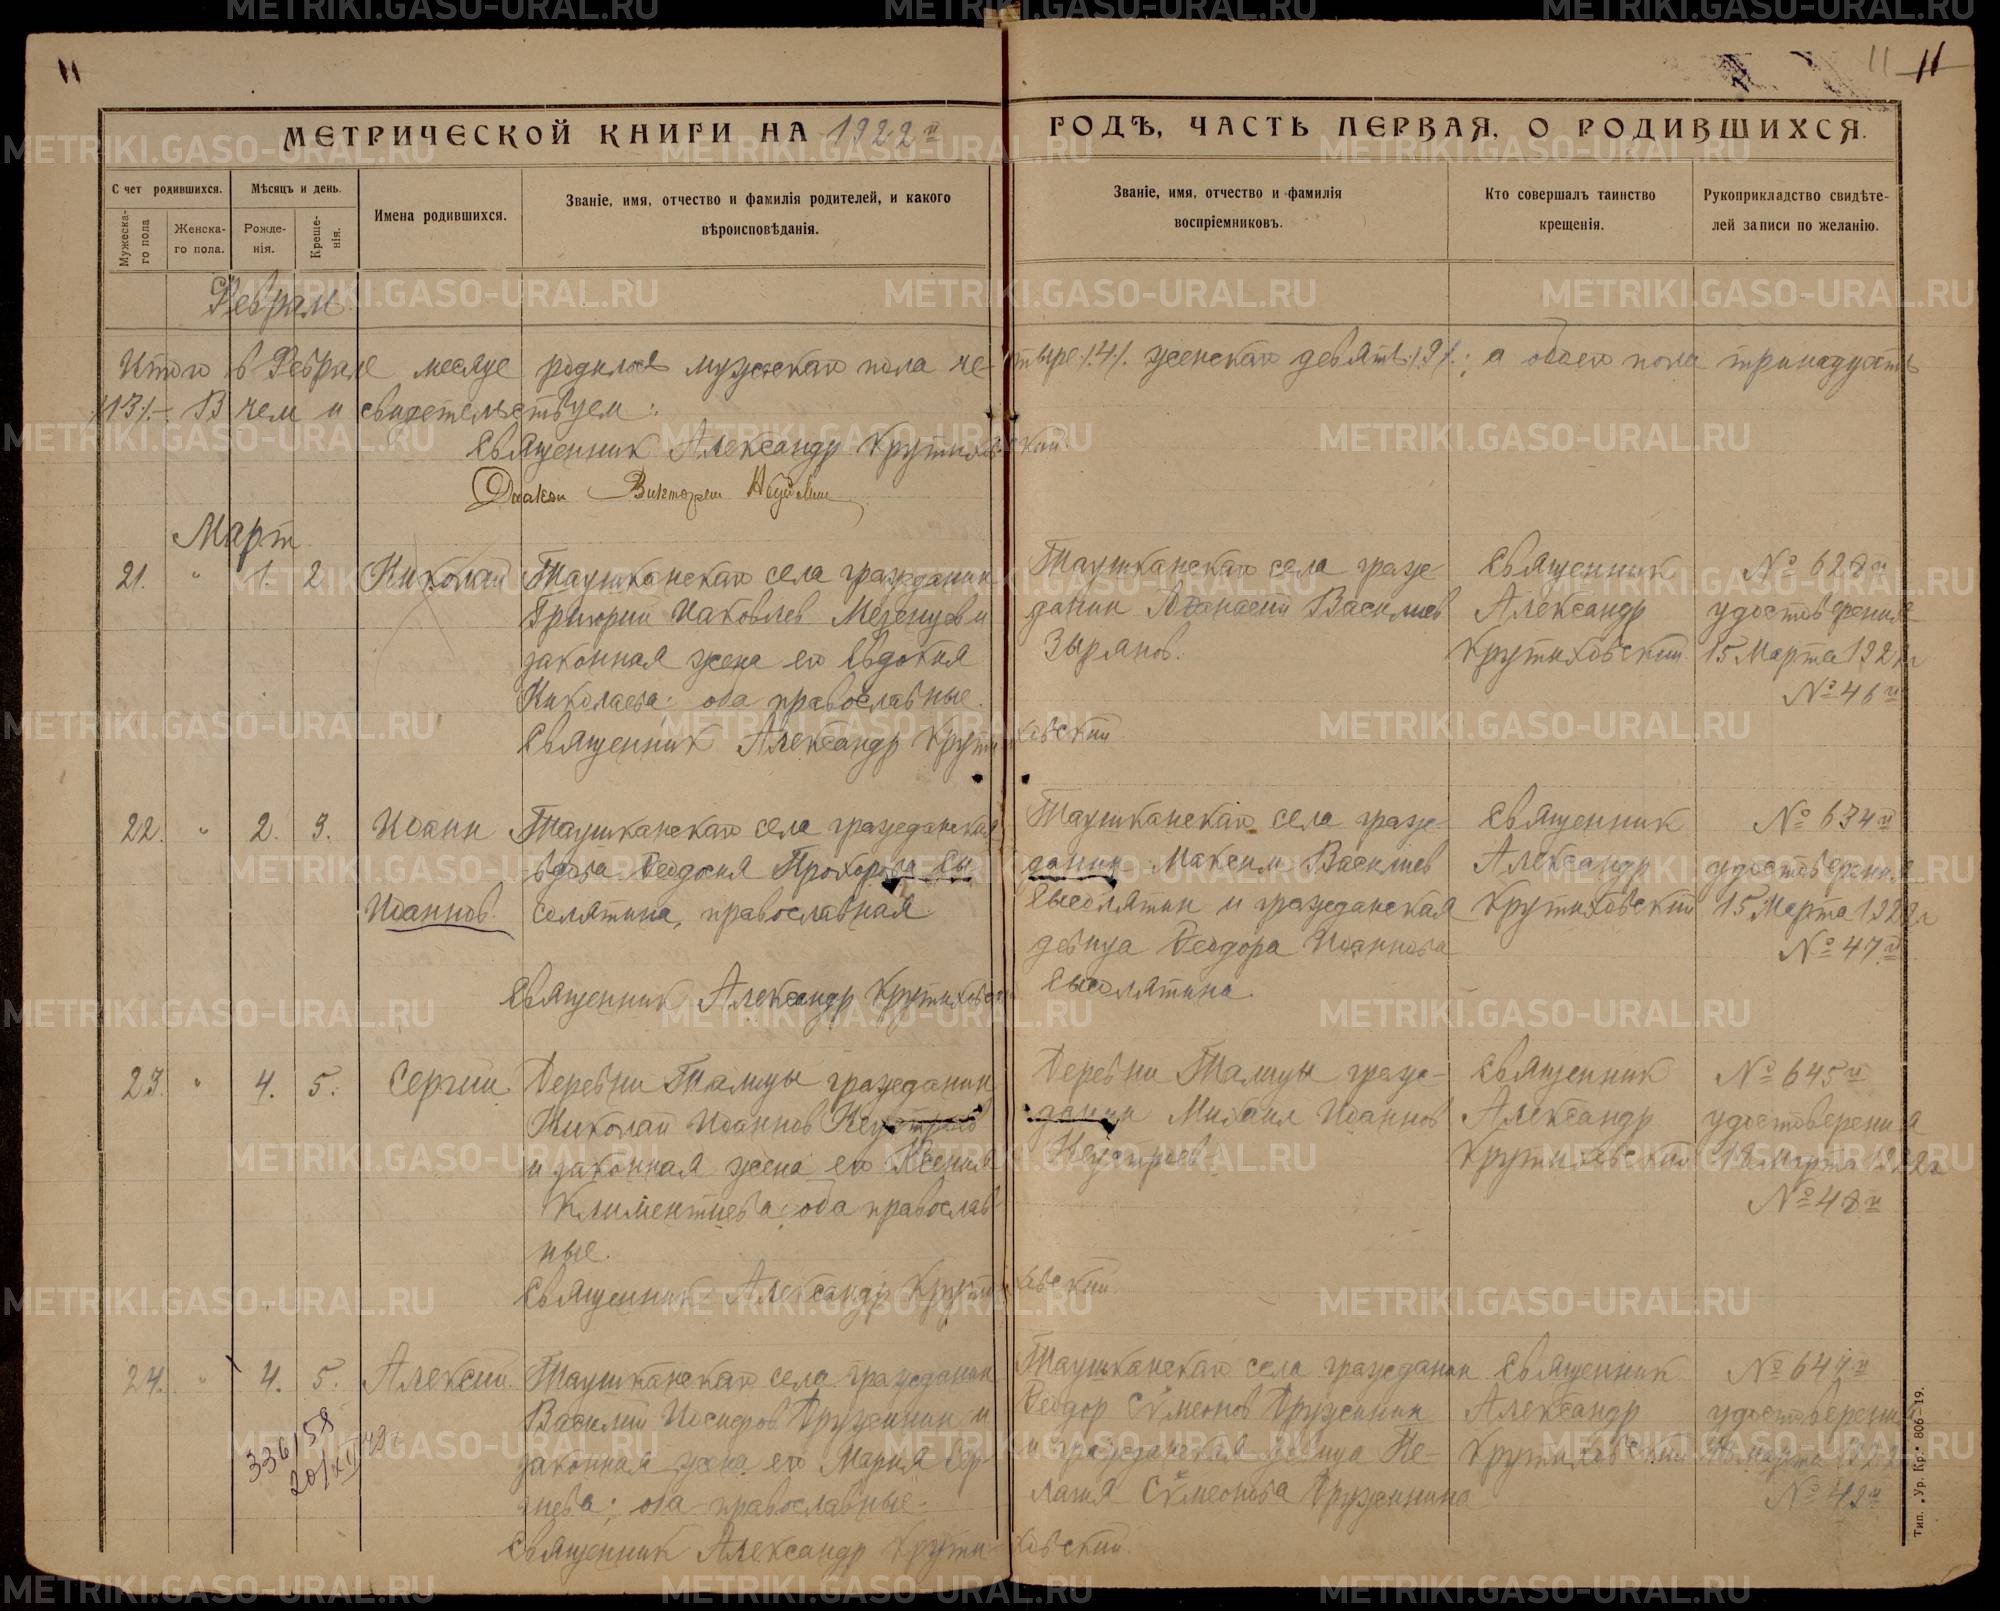 11
11 11
МЕТРИЧЕСКОЙ КНИГИ НА 1922й ГОДѢ, ЧАСТЬ ПЕРВАЯ, О РОДИВШИХСЯ.
С чет родившихся.
Мужеска-
го пола
Женска-
го пола.
Мѣсяцъ и день.
Рожде-
нія.
Креще-
нія.
Имена родившихся.
Званіе, имя, отчество и фамилія родителей, и какого
вѣроисповѣданія.
Званіе, имя, отчество и фамилія
воспріемниковъ.
Кто совершалъ таинство
крещенія.
Рукоприкладство свидѣте-
лей записи по желанію.
Феврал
Итого в Феврале месяце родилось мужскаго пола че-тыре /4/. женскаго девять /9/.; а обоего пола тринадцать
/13/.- В чем и свидетельствуем:
Священник Александр Крутиховский
Диакон Викторин
Март
21. " 1. 2 Николай
Таушканскаго села гражданин
Григорий Иаковлев Мезенцов и
законная жена его Евдокия
Николаева: оба православные.
Священник Александр Крутиховский
Таушканскаго села граж-
данин Афанасий Васильев
Зырянов.
Священник
Александр
Крутиховский
№ 628й
удостоверения
15 Марта 1922г
№ 46й
22. " 2. 3. Иоанн
Иоаннов.
Таушканскаго села гражданская
вдова Феодосия Прохорова Сы
солятина, православная
Священник Александр Крутиховск
Таушканскаго села граж-
данин Максим Васильев
Сысолятин и гражданская
девица Феодора Иоаннова
Сысолятина.
Священник
Александр
Крутиховский
№ 634й
удостоверения
15 Марта 1922г
№ 47й
23. " 4. 5. Сергий
Деревни Талицы гражданин
Николай Иоаннов Неустроев
и законная жена его Ксения
Климентиева: оба православ
ные.
Священник Александр Крутиховский
Деревни Талицы граж-
данин Михаил Иоаннов
Неустроев.
Священник
Александр
Крутиховский
№ 645й
удостоверения
18 Марта 1922г
№ 48й
24. " 4. 5. Алексий.
336/58
Таушканскаго села гражданин
Василий Иосифов Дружинин и
законная жена его Мария Сер-
гиева; оба православные.
Священник Александр Крутиховский.
Таушканскаго села гражданин
Феодор Сѵмеонов Дружинин
и гражданская девица Пе-
лагия Сѵмеонова Дружинина
Священник
Александр
Крутиховский
№ 644й
удостоверения
18 марта 1922
№ 49й
Тип. „Ур. Кр.“ 806—19.
METRIKI.GASO-URAL.RU